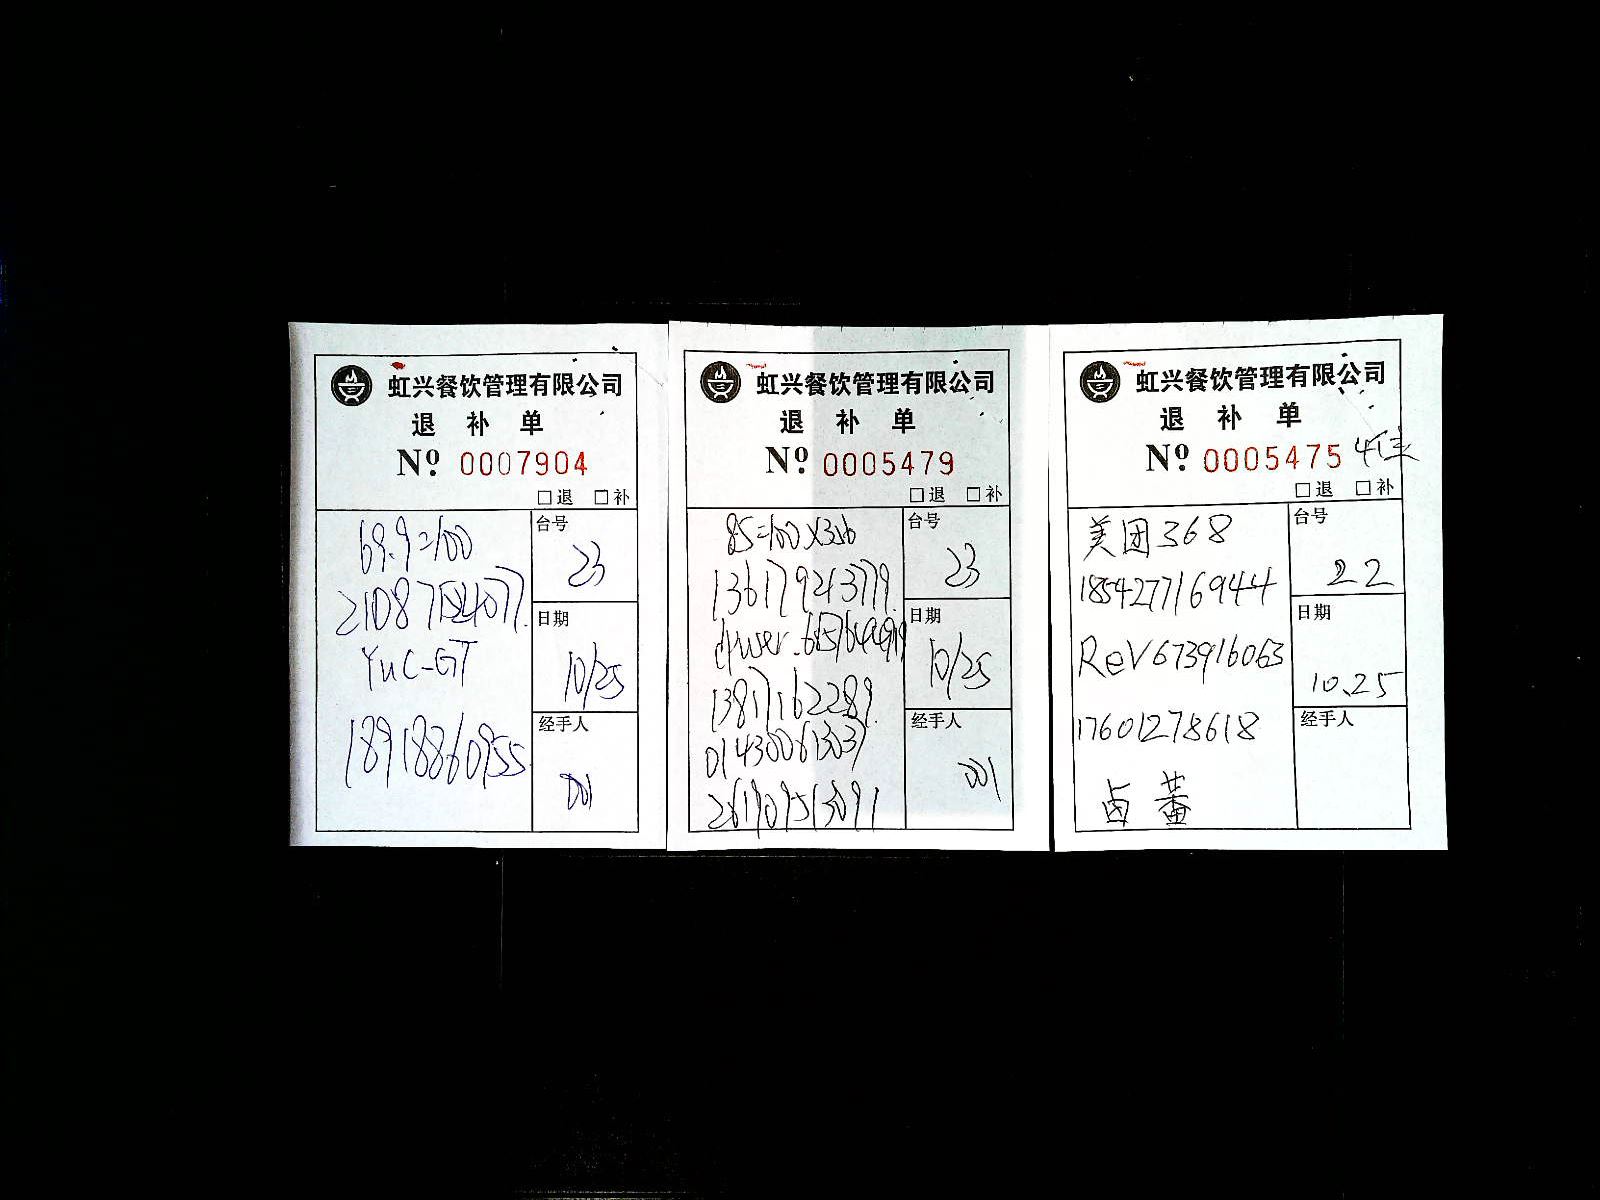 虹兴餐饮管理有限公司
退 补 单
Nº 0007904
□退 □补
69.9=100
YuC-GT
18918860955
台号
23
日期
10/25
经手人
001
虹兴餐饮管理有限公司
退 补 单
Nº 0005479
□退 □补
85=100
13617921379
13817162289
014300613037
台号
23
日期
10/25
经手人
001
虹兴餐饮管理有限公司
退 补 单
Nº 0005475
□退 □补
美团368
185427716944
ReV673916063
17601278618
卤
台号
22
日期
10.25
经手人